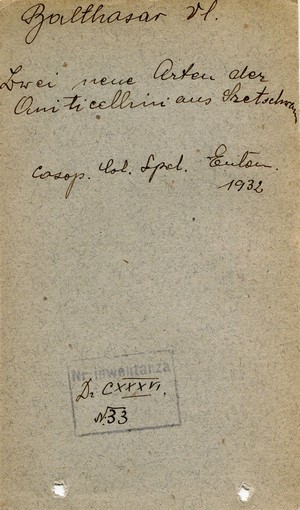 Balthasar Vl.
Zwei neue Arten der
Oniticellini aus Szetschwan
Casop. Čsl. Spol. Entom.
1932
Nr inwentarza
Dr CXXXVI.
N. 33